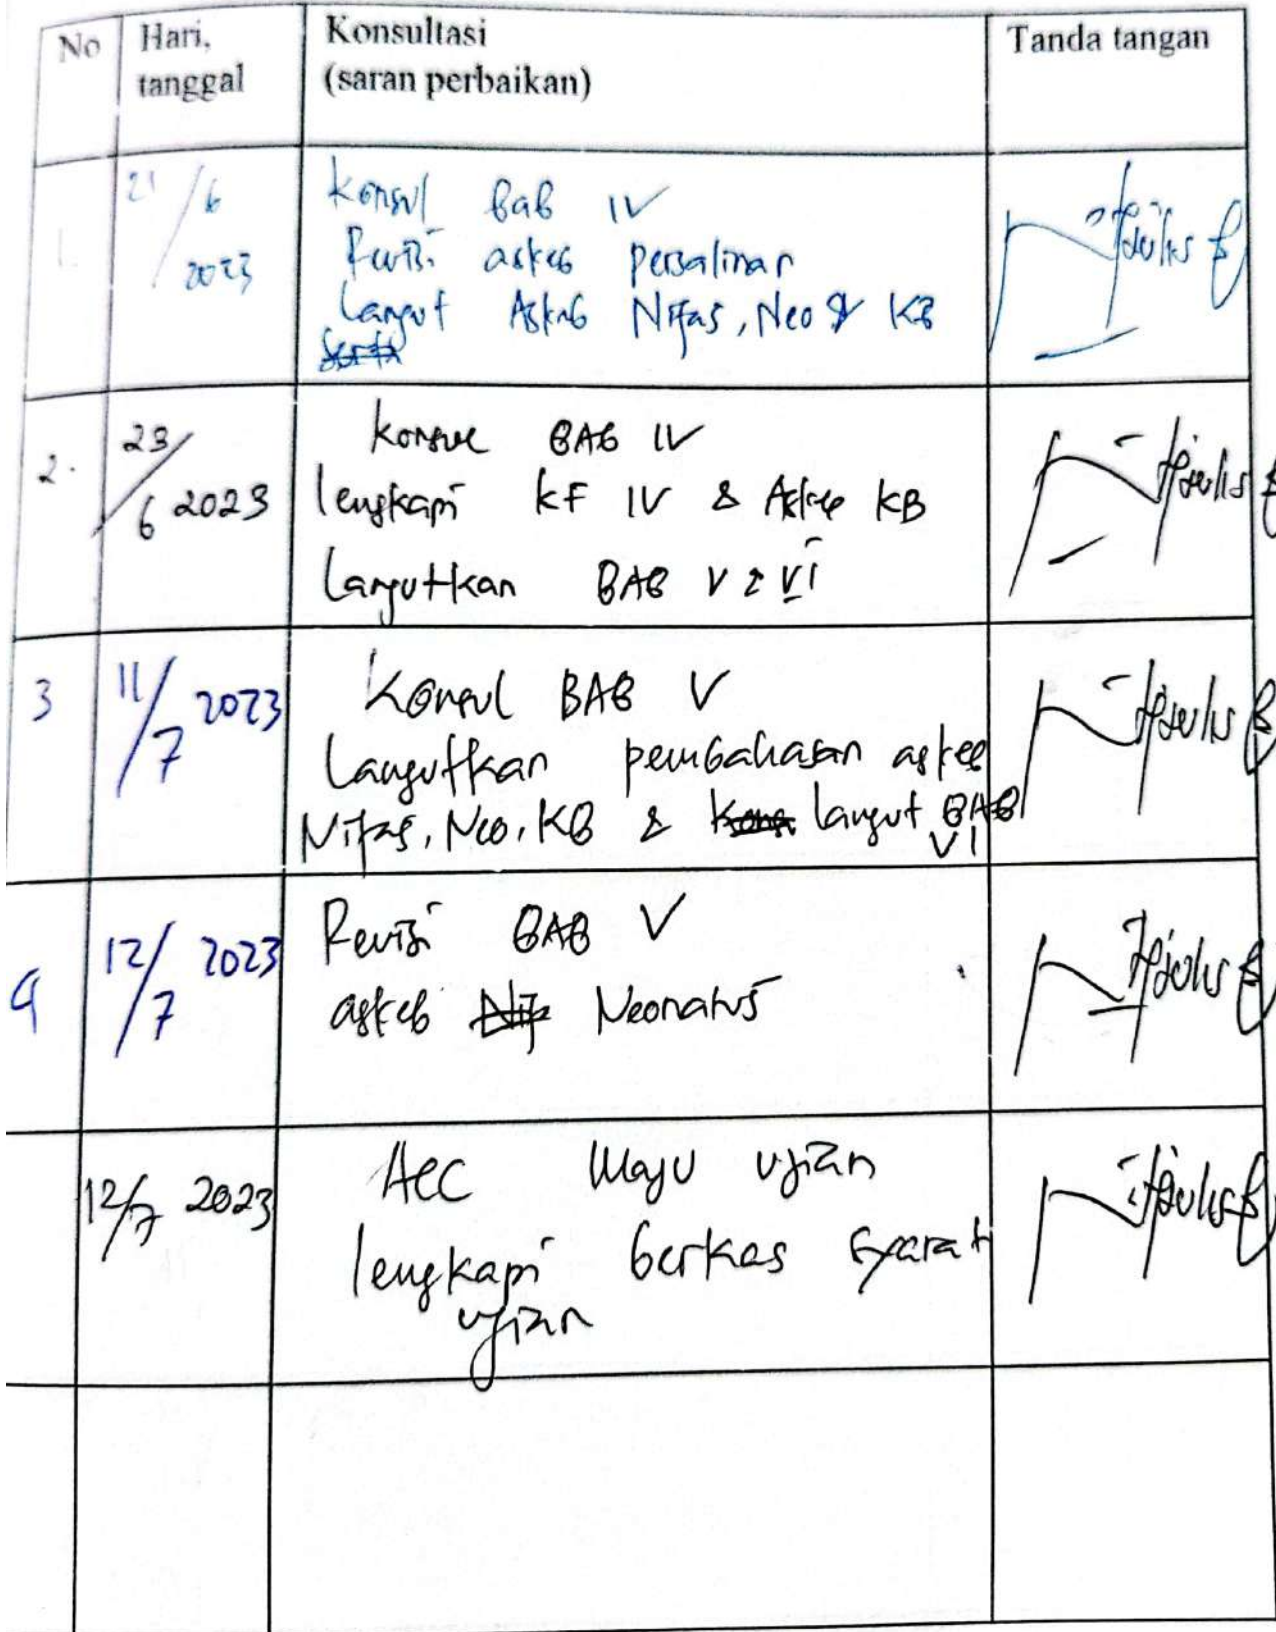 No Hari, tanggal Konsultasi (saran perbaikan) Tanda tangan
1. 21/6 2023
Konsul Bab IV
Revisi askeb persalinan
Lanjut Askeb Nifas, Neo & KB
2. 23/6 2023
Konsul BAB IV
lengkapi KF IV & Askeb KB
Lanjutkan BAB V & VI
3 11/7 2023
Konsul BAB V
Lanjutkan pembahasan askeb
Nifas, Neo, KB & lanjut BAB
VI
4 12/7 2023
Revisi BAB V
askeb Neonatus
12/7 2023
Acc Maju ujian
lengkapi berkas syarat
ujian